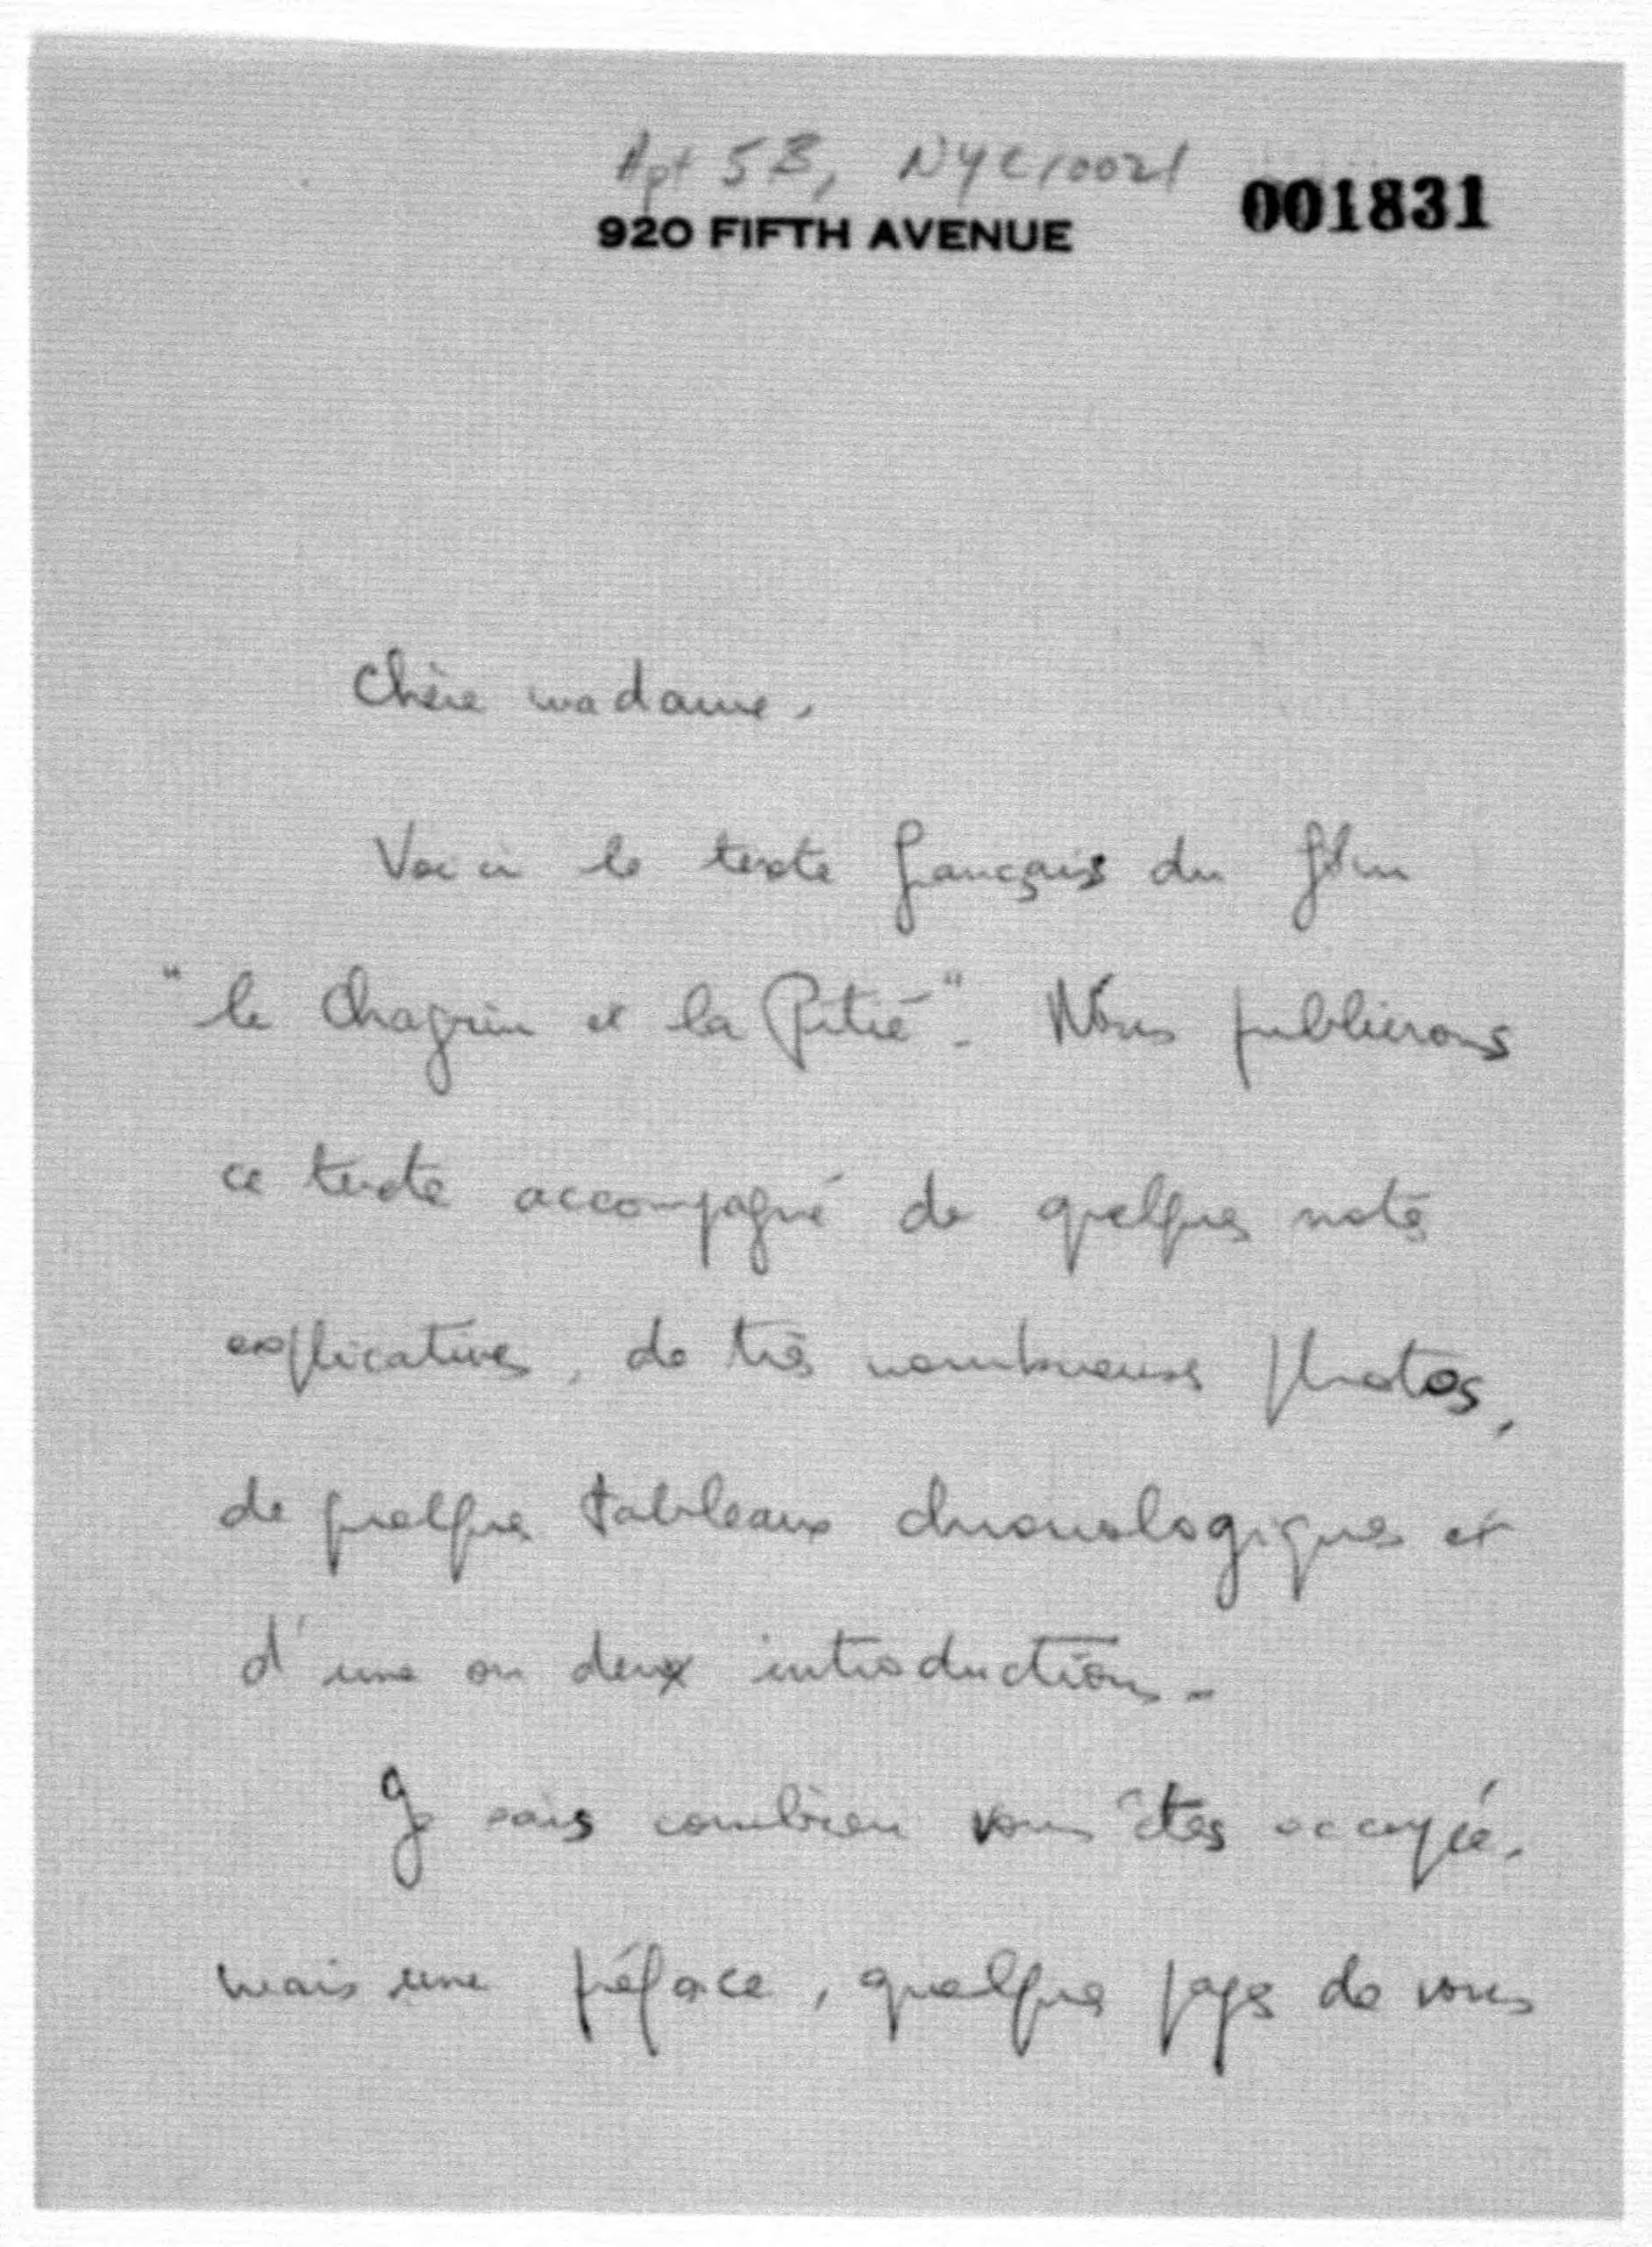 Apt 5B, NYC 10021
920 FIFTH AVENUE 001831
Chère madame,
Voici le texte français du film
"le Chagrin et la Pitié". Nous publierons
ce texte accompagné de quelques notes
explicatives, de très nombreuses photos,
de quelques tableaux chronologiques et
d'une ou deux introductions.
Je sais combien vous êtes occupée,
mais une préface, quelques pages de vous